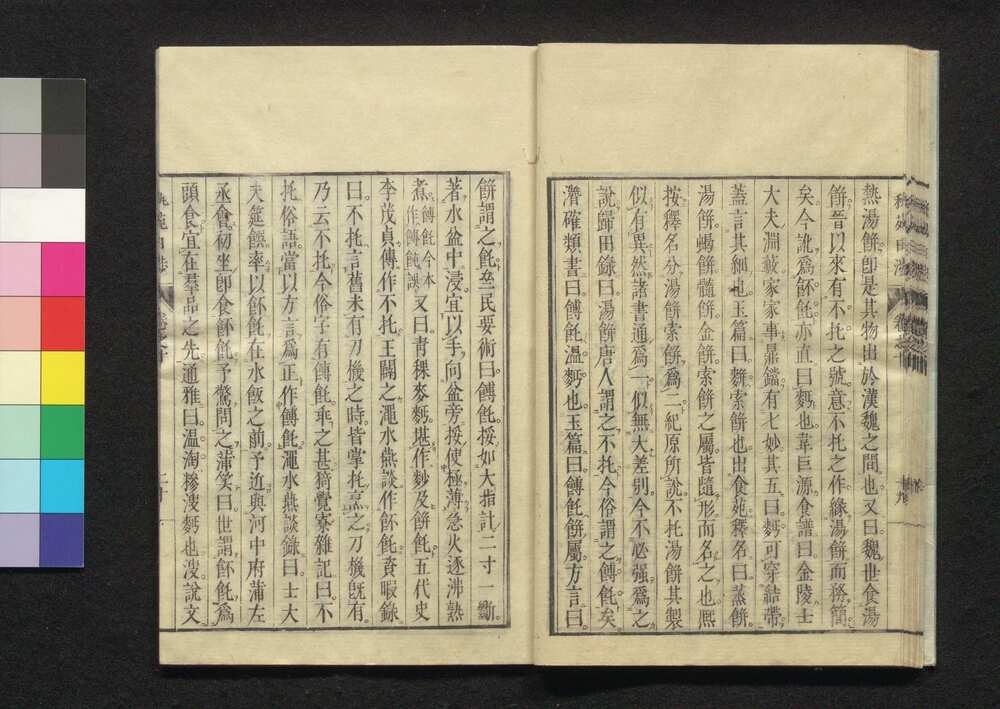 熱湯餅卽是其物出於漢魏之間也又曰魏世食湯
餅晉以來有不托之號意不托之作緣湯餅而務簡
矣今訛爲飥亦直曰麪也韋巨源食譜曰金陵士
大夫淵藪家家事鼎鐺有七妙其五曰麪可穿結帶
蓋言其細也玉篇曰䴽索餅也出食苑釋名曰蒸餅
湯餅蝎餅髓餅金餅索餅之屬皆隨形而名之也熙
按釋名分湯餅索餅爲二紀原所說不托湯餅其製
似有異然諸書通爲一似無大差别今不必强爲之
說歸田錄曰湯餅唐人謂之不托今俗謂之餺飥矣
潛確類書曰餺飥溫麪也玉篇曰餺飥餅屬方言曰
餅謂之飥 民要術曰餺飥挼如大指計二寸一斷
著水盆中浸宜以手向盆旁挼使極薄急火逐沸熟
煮餺飥今本作餺飩誤又曰靑稞麥麪堪作麨及餅飥五代史
李茂貞傳作不托王闢之澠水燕談作飥資暇錄
曰不托言舊未有刀機之時皆掌托烹之刀機旣有
乃云不托今俗字有餺飥乖之甚猗覺寮雜記曰不
托俗語當以方言爲正作餺飥澠水燕談錄曰士大
夫筵饌率以飥在水飯之前予近與河中府蒲左
丞會初坐卽食飥予驚問之蒲笑曰世謂飥爲
頭食宜在羣品之先通雅曰温淘糝溲麪也溲說文